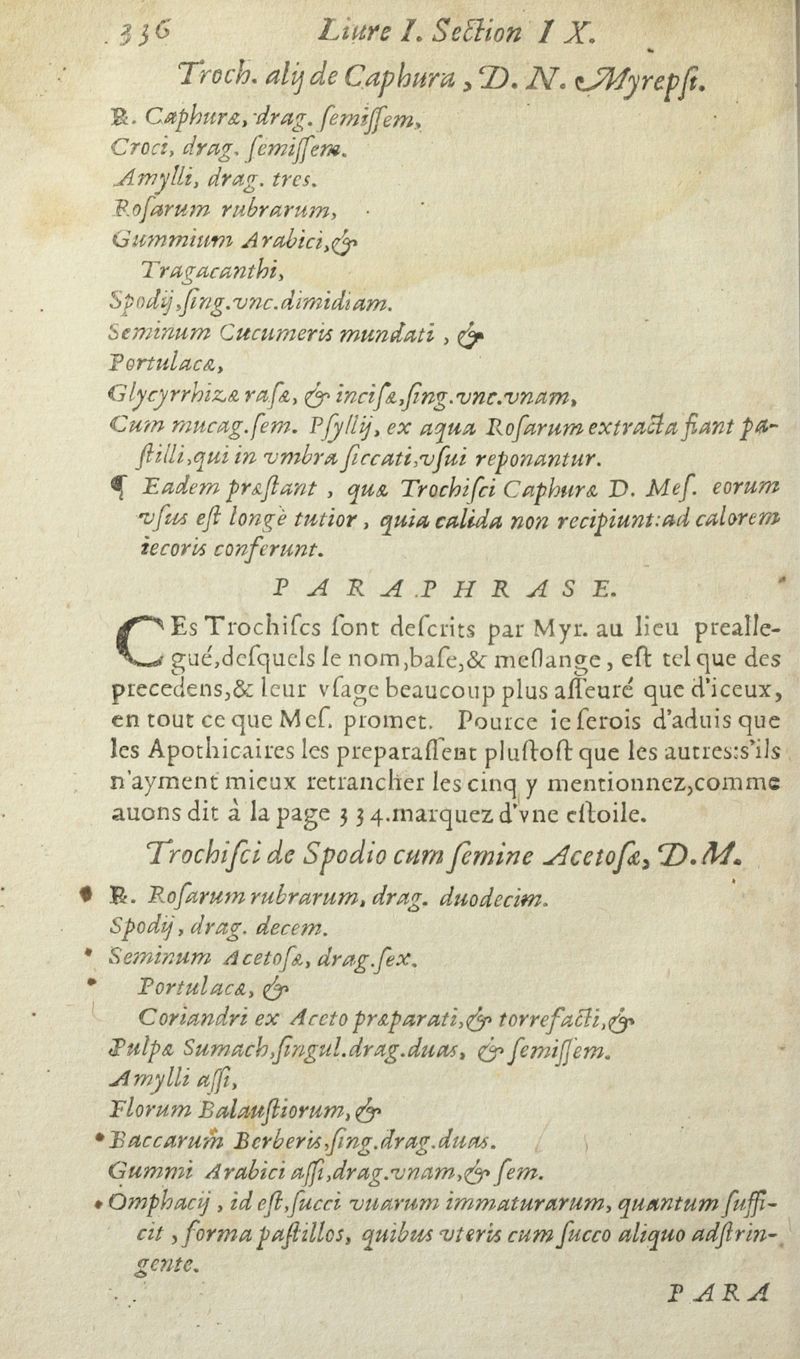 336 Liure I. Section IX.
Troch. alij de Caphura, D. N. Myrepsi.
℞. Caphuræ, drag. semissem,
Croci, drag. semissem.
Amylli, drag. tres.
Rosarum rubrarum,
Gummium Arabici,&
Tragacanthi,
Spodij,sing.vnc.dimidiam.
Seminum Cucumeris mundati , &
Portulacæ,
Glycyrrhizæ rasæ, & incisæ,sing.vnc.vnam,
Cum mucag.sem. Psyllij, ex aqua Rosarum extracta fiant pa-
stilli,qui in vmbra siccati,vsui reponantur.
¶ Eadem præstant , quæ Trochisci Caphuræ D. Mes. eorum
vsus est longè tutior , quia calida non recipiunt:ad calorem
iecoris conferunt.
PARAPHRASE.
CEs Trochiscs sont descrits par Myr. au lieu prealle-
gué,desquels le nom,base,& meslange, est tel que des
precedens,& leur vsage beaucoup plus asseuré que d'iceux,
en tout ce que Mes. promet. Pource ie serois d'aduis que
les Apothicaires les preparassent plustost que les autres:s'ils
n'ayment mieux retrancher les cinq y mentionnez,comme
auons dit à la page 334.marquez d'vne estoile.
Trochisci de Spodio cum semine Acetosæ, D. M.
℞. Rosarum rubrarum, drag. duodecim.
Spodij, drag. decem.
* Seminum Acetosæ, drag.sex.
* Portulacæ, &
Coriandri ex Aceto præparati,& torrefacti,&
Pulpæ Sumach,singul.drag.duas, & semissem.
Amylli assi,
Florum Balaustiorum,&
* Baccarum Berberis,sing.drag.duas.
Gummi Arabici assi,drag.vnam,& sem.
* Omphacij , id est,succi vuarum immaturarum, quantum suffi-
cit , forma pastillos, quibus vteris cum succo aliquo adstrin-
gente.
PARA